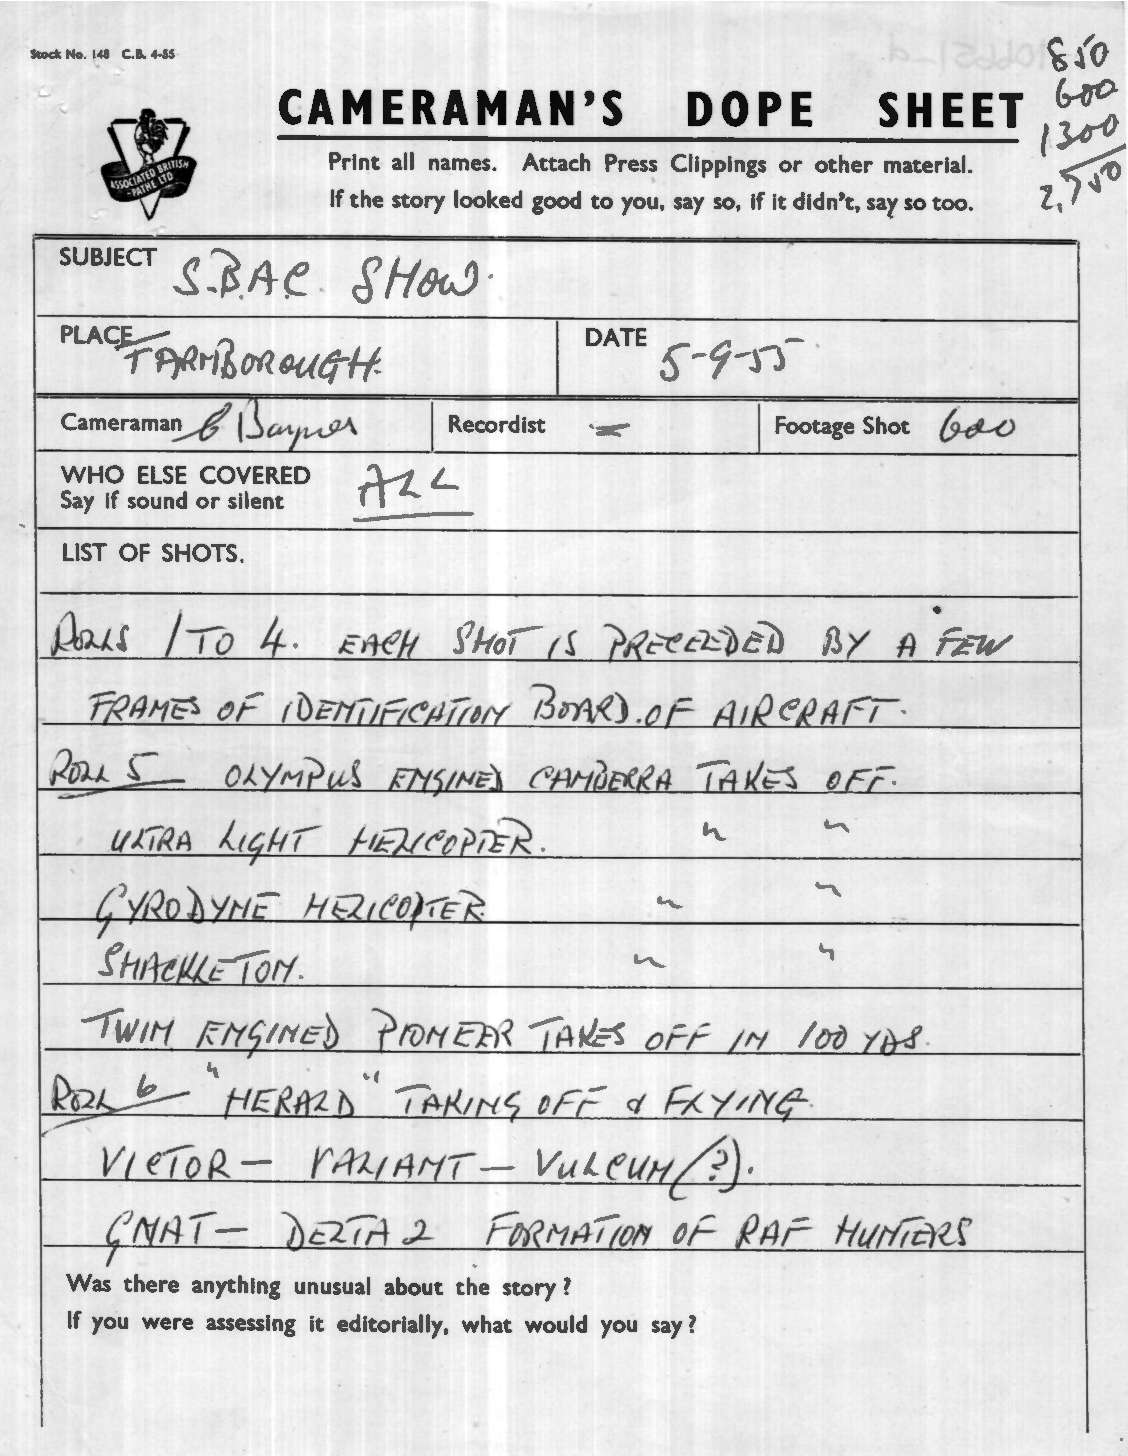 Stock No. 148 C.B. 4-55
850
600
1300
2,750
CAMERAMAN'S DOPE SHEET
Print all names. Attach Press Clippings or other material.
If the story looked good to you, say so, if it didn't, say so too.
ASSOCIATED BRITISH
-PATHE LTD
SUBJECT S.B.A.C. SHOW.
PLACE FARNBOROUGH. DATE 5-9-55
Cameraman Baynes Recordist - Footage Shot 600
WHO ELSE COVERED ALL
Say if sound or silent
LIST OF SHOTS.
ROLLS 1 TO 4. EACH SHOT IS PRECEEDED BY A FEW
FRAMES OF IDENTIFICATION BOARD. OF AIRCRAFT.
ROLL 5 OLYMPUS ENGINED CANBERRA TAKES OFF.
ULTRA LIGHT HELICOPTER. " "
GYRODYNE HELICOPTER " "
SHACKLETON. " "
TWIN ENGINED PIONEER TAKES OFF IN 100 YDS.
ROLL 6 "HERALD" TAKING OFF & FLYING.
VICTOR - VALIANT - VULCUN (?).
GNAT - DELTA 2 FORMATION OF RAF HUNTERS
Was there anything unusual about the story?
If you were assessing it editorially, what would you say?